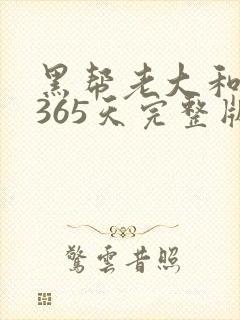 黑帮老大和
365天完整版
驚雲昔照